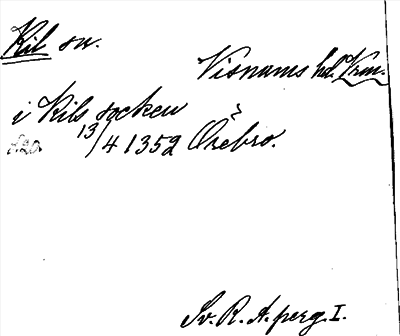 Kil sn.
Visnums hd. Vrm.
i Kils socken
13/4 1352 Örebro.
Sv. R. A. perg. I.